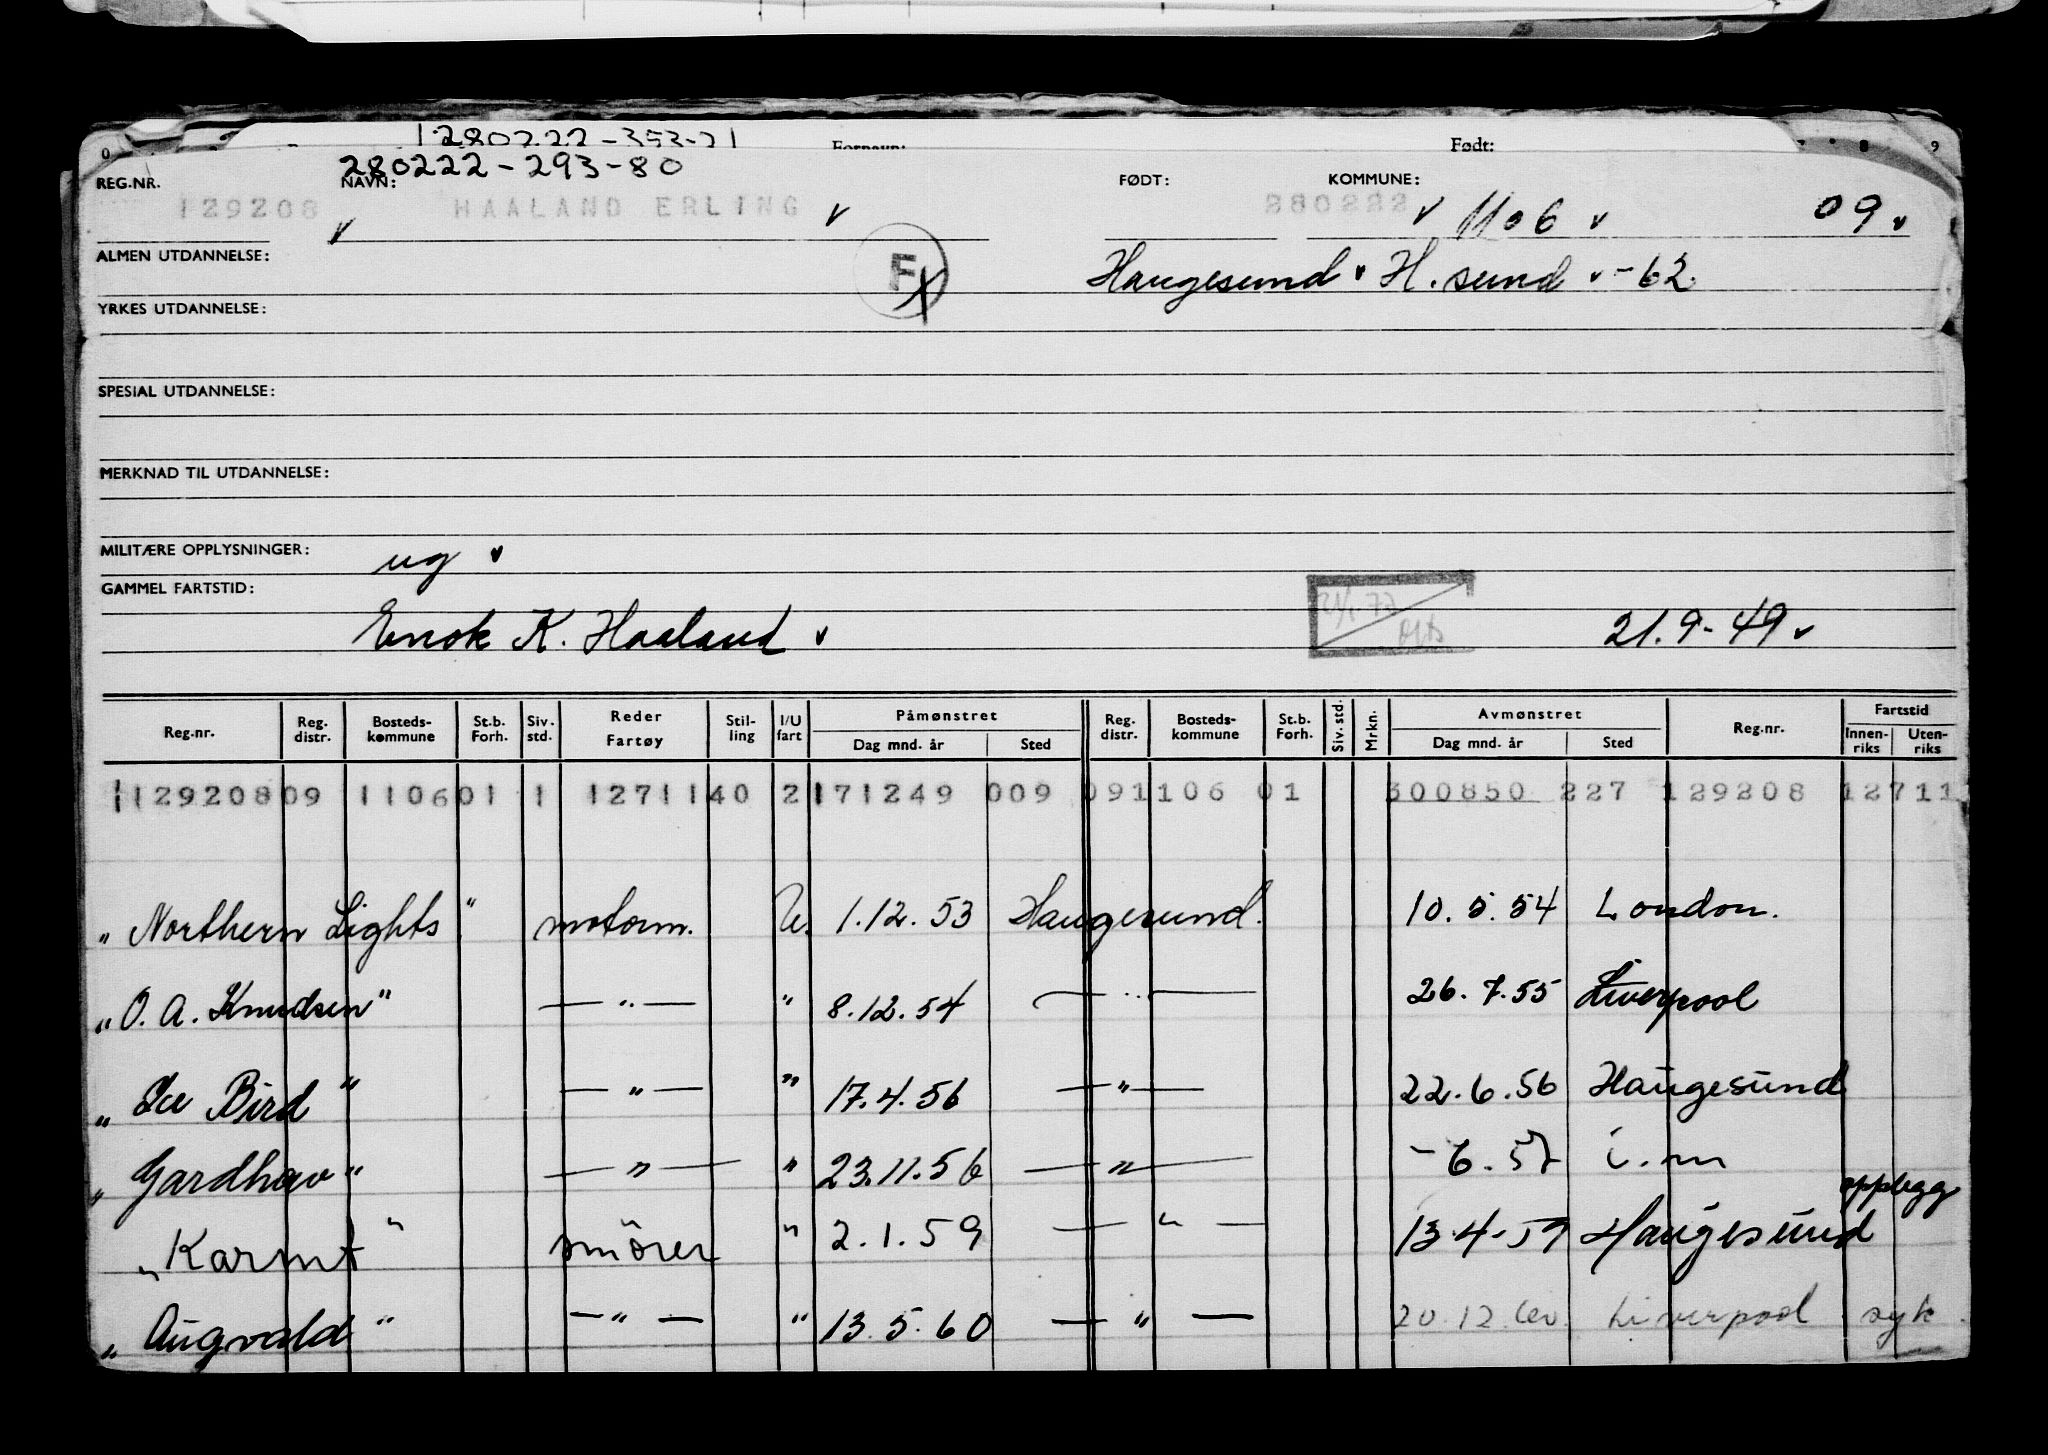 280222-353-21
Fornavn: Født: 8 9
280222-293-80
REG.NR. NAVN: FØDT: KOMMUNE:
129208 HAALAND ERLING 280222 1106 09
ALMEN UTDANNELSE: F Haugesund H.sund -62.
YRKES UTDANNELSE:
SPESIAL UTDANNELSE:
MERKNAD TIL UTDANNELSE:
MILITÆRE OPPLYSNINGER: ug
GAMMEL FARTSTID:
Enok K. Haaland 21.9-49
Reg.nr. Reg. distr. Bosteds- kommune St.b. Forh. Siv. std. Reder Fartøy Stil- ling I/U fart Påmønstret Dag mnd. år Sted Reg. distr. Bosteds- kommune St.b. Forh. Siv. std. Mrkn. Avmønstret Dag mnd. år Sted Reg.nr. Fartstid Innen- riks Uten- riks
112920809 110601 1 1271140 2171249 009 091106 01 300850 227 129208 12711
"Northern Lights" motorm. U. 1.12.53 Haugesund. 10.5.54 London.
"O. A. Knudsen" — " — " 8.12.54 — " — 26.7.55 Liverpool
"Ice Bird" — " — " 17.4.56 — " — 22.6.56 Haugesund
"Gardhav" — " — " 23.11.56 — " — -6.57 i.m
"Karmt" smörer " 2.1.59 — " — 13.4-59 Haugesund opplegg
"Augvald" — " — " 13.5.60 — " — 20.12.60. Liverpool syk.